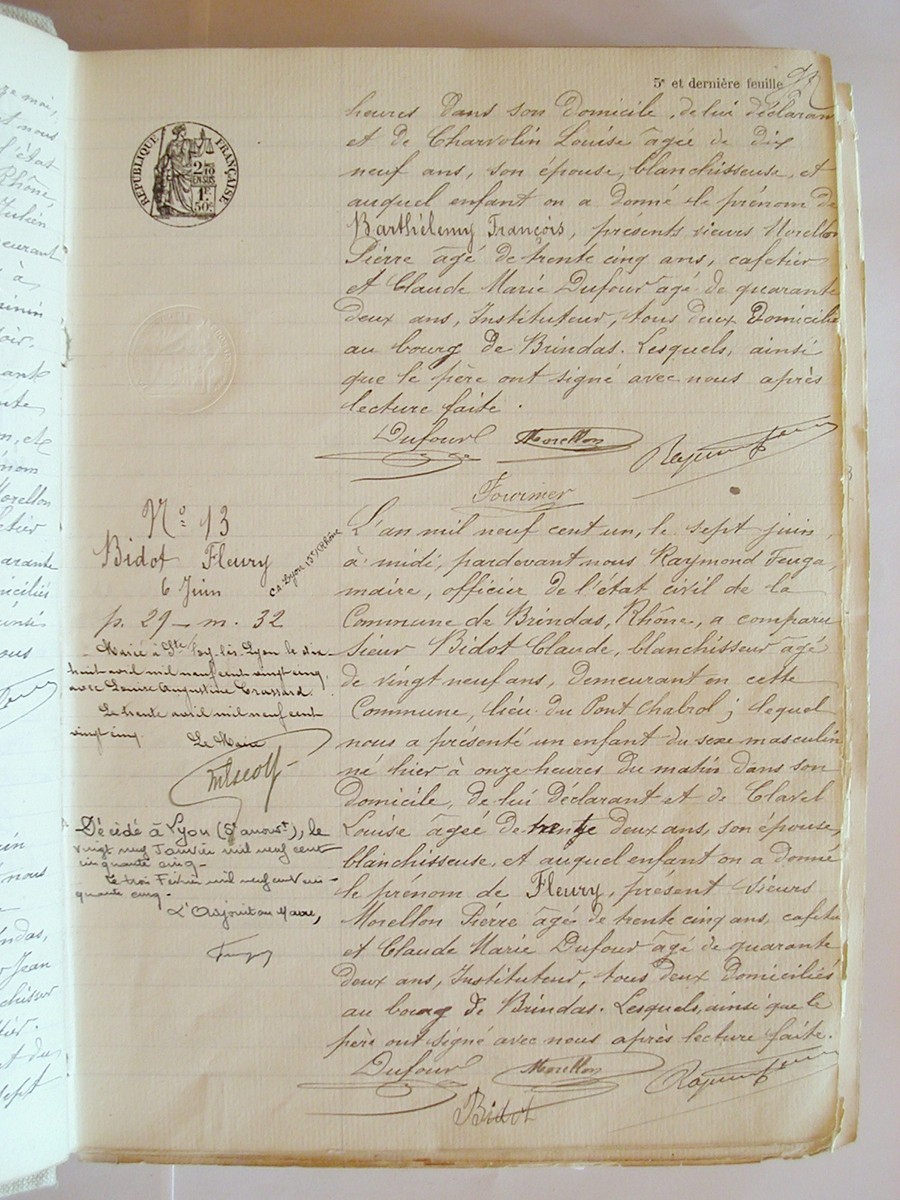 5e et dernière feuille
RÉPUBLIQUE FRANÇAISE
2/10
EN SUS
1F
50c
heures dans son domicile, de lui déclarant
et de Charvolin Louise âgée de dix
neuf ans, son épouse, blanchisseuse, et
auquel enfant on a donné le prénom de
Barthélemy François, présents sieurs Morellon
Pierre âgé de trente cinq ans, cafetier
et Claude Marie Dufour âgé de quarante
deux ans, Instituteur, tous deux Domiciliés
au bourg de Brindas. Lesquels, ainsi
que le père ont signé avec nous après
lecture faite.
Dufour Morellon
Fournier
No 13
Bidot Fleury
6 Juin
p. 29 - m. 32
Marié à Ste Foy-lès-Lyon le dix-
huit avril mil neuf cent vingt cinq
avec Louise Augustine Crassard.
Le trente avril mil neuf cent
vingt cinq.
Le Maire
Décédé à Lyon, le
vingt neuf Janvier mil neuf cent
cinquante cinq -
Le trois Février mil neuf cent cin-
quante cinq -
L'Adjoint au Maire,
L'an mil neuf cent un, le sept juin,
à midi, pardevant nous Raymond Feuga,
maire, officier de l'état civil de la
Commune de Brindas, Rhône, a comparu
sieur Bidot Claude, blanchisseur âgé
de vingt neuf ans, demeurant en cette
Commune, lieu du Pont Chabrol; lequel
nous a présenté un enfant du sexe masculin
né hier à onze heures du matin dans son
domicile, de lui Déclarant et de Clavel
Louise âgée de trente deux ans, son épouse,
blanchisseuse, et auquel enfant on a donné
le prénom de Fleury, présent sieurs
Morellon Pierre âgé de trente cinq ans, cafetier
et Claude Marie Dufour âgé de quarante
deux ans, Instituteur, tous deux domiciliés
au bourg de Brindas. Lesquels, ainsi que le
père ont signé avec nous après lecture faite.
Dufour Morellon
Bidot